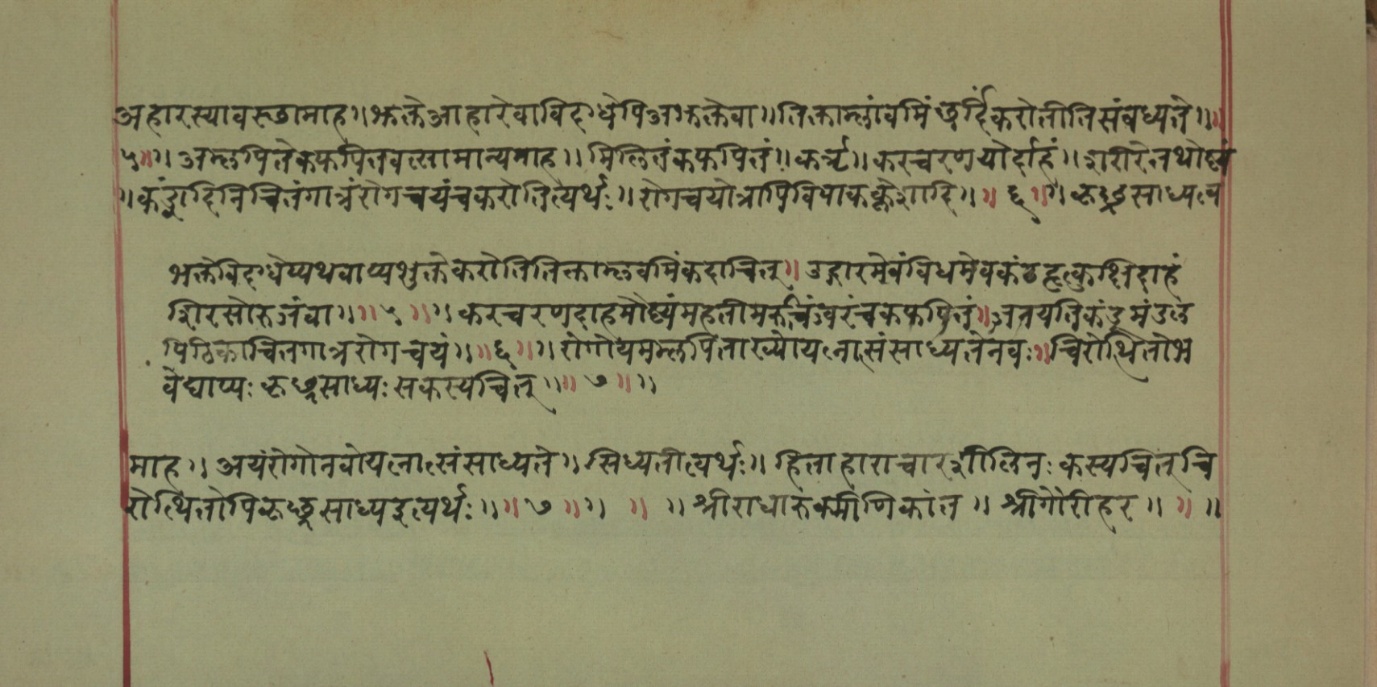 अहारस्यावस्छामाह ॥ भक्ते आहारे वा विदग्धेपि अभक्ते वा ॥ तिक्ताम्लांवमिं छर्दिं करोतीति संबध्यते ॥ ॥
५॥ ॥ अम्लपित्ते कफपित्तवत्सामान्यमाह ॥ मिलितं कफपित्तं ॥ कर्तृ ॥ करचरणयोर्दाहं ॥ शरीरे तथोष्ण्यं
॥ कंड्वादिनिचितं गात्रं रोगचयं च करोतित्यर्थः ॥ रोगचयोत्रापि विपाकक्लेशादि ॥ ॥ ६ ॥ ॥ कृछ्रसाध्यत्व
भक्ते विदग्धेप्यथवाप्यभुक्ते करोति तिक्ताम्लवमिं कदाचित् ॥ उद्गारमेवंविधमेव कंठहृत्कुक्षिदाहं
शिरसोरुजं वा ॥ ॥ ५ ॥ ॥ करचरणदाहमौष्ण्यं महतीमरुचिं ज्वरं च कफपित्तं ॥ जनयति कंडुमंडल
पिठिकाचितगात्ररोगचयं ॥ ॥ ६ ॥ ॥ रोगोयमम्लपित्ताख्यो यत्नात्संसाध्यते नवः ॥ चिरोत्थितो भ
वेद्याप्यः कृछ्रसाध्यः स कस्यचित् ॥ ॥ ७ ॥ ॥
माह ॥ अयं रोगो नवो यत्नात्संसाध्यते ॥ सिध्यतीत्यर्थः ॥ हिताहाराचारशीलिनः कस्यचित् चि
रोत्थितोपि कृछ्रसाध्य इत्यर्थः ॥ ॥ ७ ॥ ॥ ॥ ॥ श्रीराधारुक्मीणिकांत ॥ श्रीगौरीहर ॥ ॥ ॥